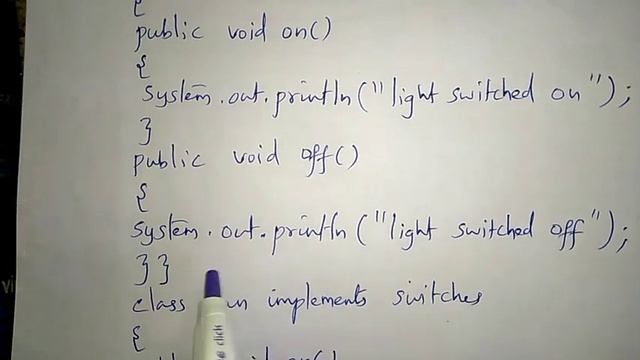 {
public void on()
{
system.out.println("light switched on");
}
public void off()
{
system.out.println("light switched off");
}}
class implements switches
{
click